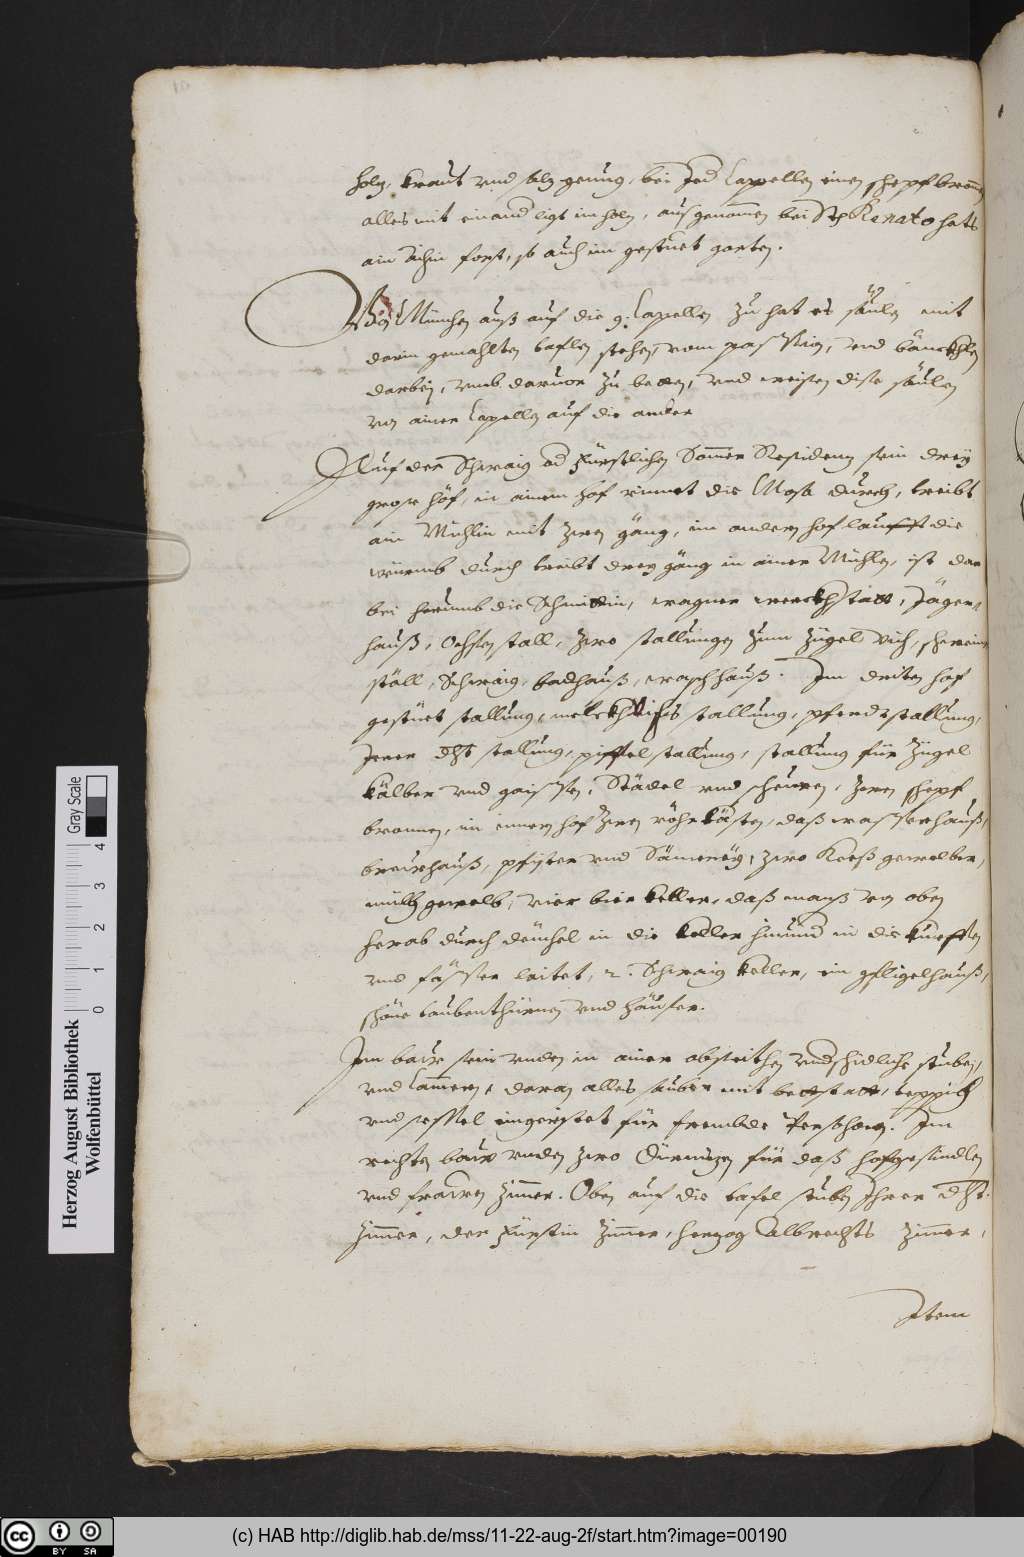 holz, kraut vnd salz genug, bei Jed Cappellen einen schepfbronnen
alles mit einand ligt im holz, ausgenommen bei St Renato hats
ain schin forst, so auch im gestuet garten.
Von München auß auf die 9. Capellen zu hat es säulen mit
darin gemahlten taflen stehen, vom passion, vnd bänckhlen
darbei, vmb daruor zu betten, vnd weisen dise säulen
von ainer Capellen auf die ander
Auf der Schwaig od Fürstlichen Sommer Residenz sein drey
grose höf, in ainem hof rinnet die Mosa durch, treibt
ain Mühlin mit zwen gäng, im andern hof laufft die
würmb durch treibt drey gäng in ainer Mühlen, ist dar
bei herumb die Schmitten, wagner werckhstatt, Jäger
hauß, Ochsenstall, zwo stallungen zum zügel vich, schwein
ställ, Schwaig, badhauß, waschhauß. Im driten hof
gestüet stallung, melckhvichs stallung, pferdtstallung,
Irer Dht stallung, piffelstallung, stallung für zügel
kälber vnd gaissen, Städel vnd scheüren, zwen schepf
bronnen, im innern hof zwen röhrkästen, daß wasserhauß,
breuhauß, pfister vnd Sämerey, zwo Keeß gewelber,
milch gewelb, vier bier keller, daß mans von oben
herab durch deichel in die keller hinund in die kueffen
vnd fässer laitet, 2. Schwaig keller, ein gfligelhauß,
schöne taubenthürnen vnd häuser.
Im baw sein vnden in ainer abseithen vndschidliche stuben,
vnd Camern, daran alles sauber mit bettstatt, teppich
vnd sessel eingerichtet für frembde Persohnen. Im
rechten baw vnden zwo Dürnizen für daß hofgesindlen
vnd frawen Zimmer. Oben auf die tafel stuben Ihrer Dht.
zimmer, der Fürstin zimmer, herzog Albrechts zimmer,
Item
Herzog August Bibliothek
Wolfenbüttel
0 1 2 3 4
Gray Scale
(c) HAB http://diglib.hab.de/mss/11-22-aug-2f/start.htm?image=00190
cc BY SA